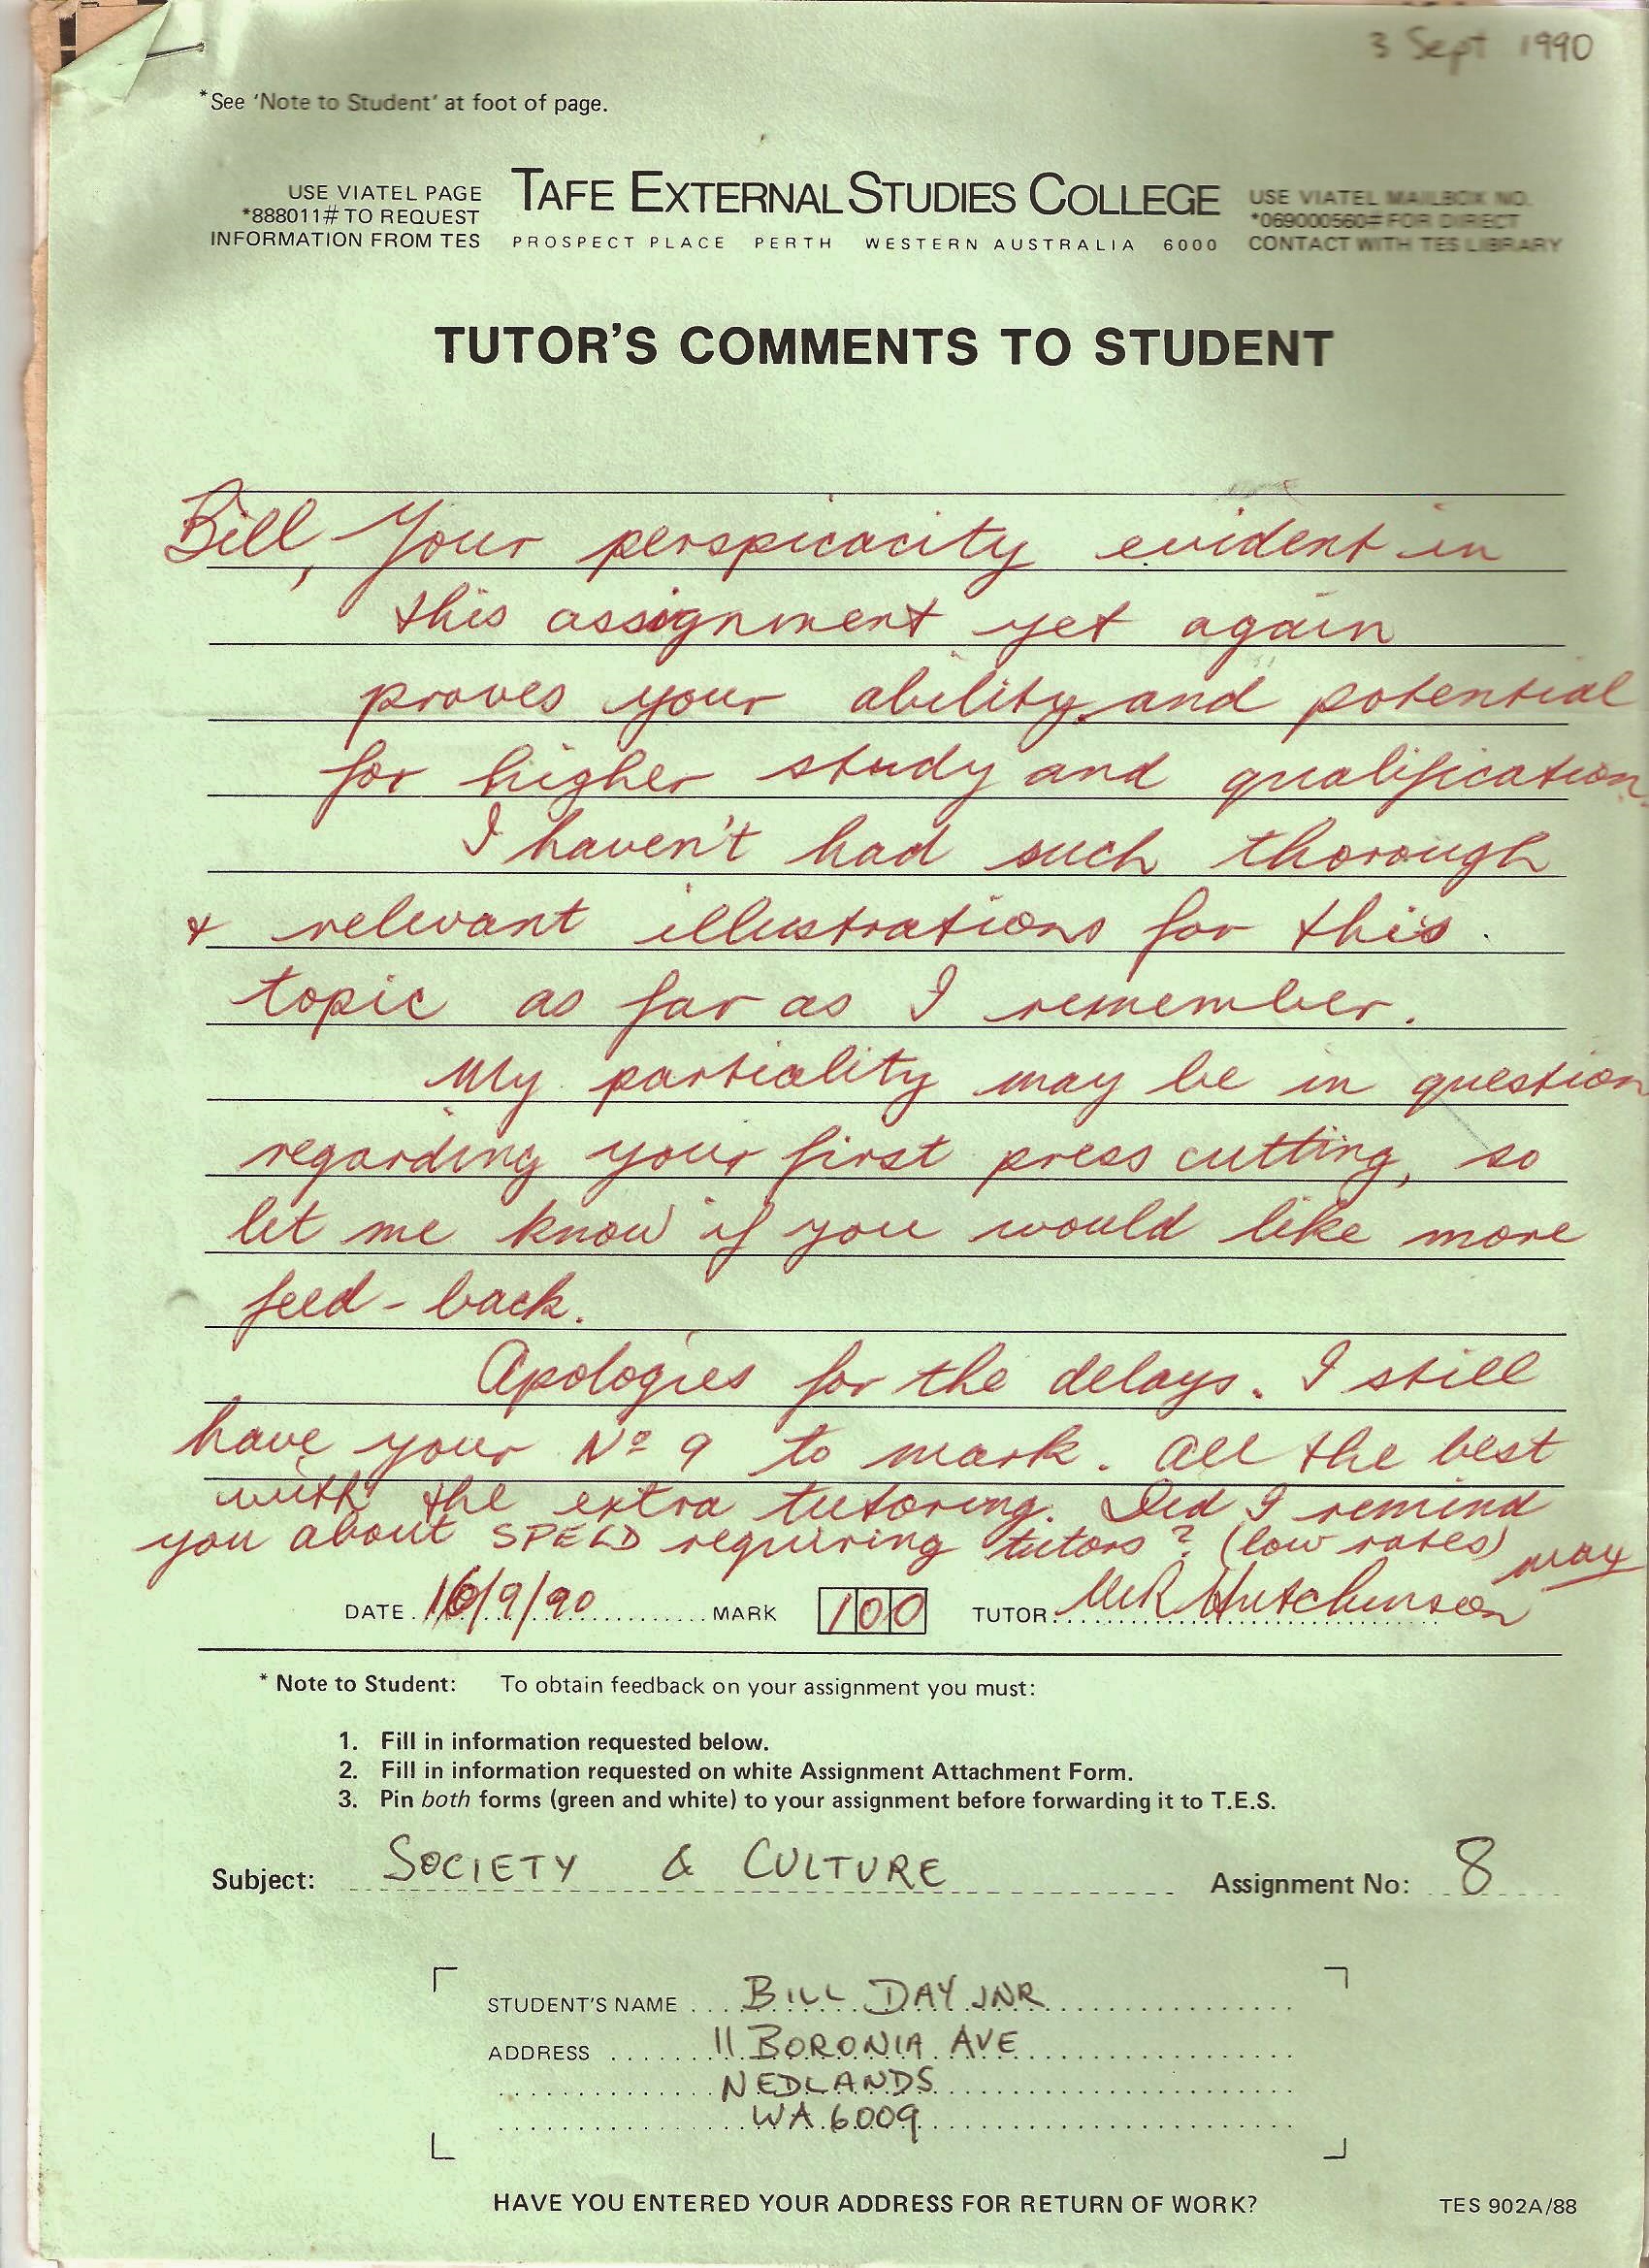 3 Sept 1990
*See 'Note to Student' at foot of page.
USE VIATEL PAGE
*888011# TO REQUEST
INFORMATION FROM TES
TAFE EXTERNAL STUDIES COLLEGE
PROSPECT PLACE PERTH WESTERN AUSTRALIA 6000
USE VIATEL MAILBOX NO.
*069000560# FOR DIRECT
CONTACT WITH TES LIBRARY
TUTOR'S COMMENTS TO STUDENT
Bill, Your perspicacity evident in
this assignment yet again
proves your ability and potential
for higher study and qualification.
I haven't had such thorough
& relevant illustrations for this
topic as far as I remember.
My partiality may be in question
regarding your first press cutting, so
let me know if you would like more
feed-back.
Apologies for the delays. I still
have your Nº 9 to mark. All the best
with the extra tutoring. Did I remind
you about SPELD requiring tutors? (low rates)
DATE 16/9/90 MARK 100 TUTOR: Hutchinson
* Note to Student: To obtain feedback on your assignment you must:
1. Fill in information requested below.
2. Fill in information requested on white Assignment Attachment Form.
3. Pin both forms (green and white) to your assignment before forwarding it to T.E.S.
Subject: SOCIETY & CULTURE Assignment No: 8
STUDENT'S NAME BILL DAY JNR
ADDRESS 11 BORONIA AVE
NEDLANDS
WA 6009
HAVE YOU ENTERED YOUR ADDRESS FOR RETURN OF WORK?
TES 902A/88